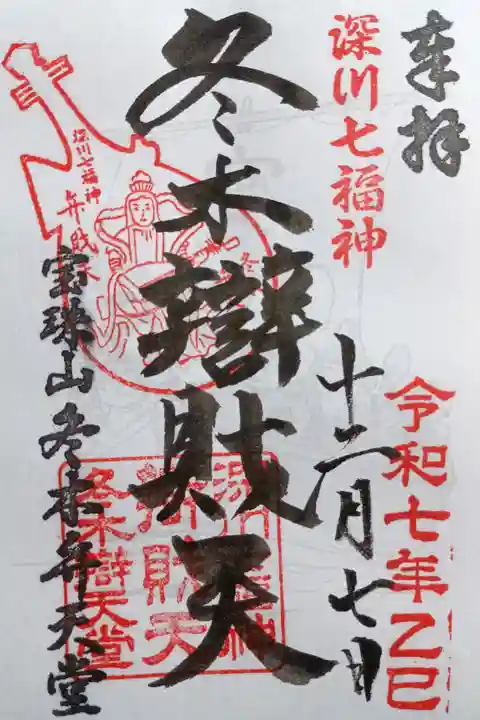 奉拝
深川七福神
令和七年乙巳
十二月七日
冬木辯財天
深川七福神
弁財天
冬
宝珠山冬木弁天堂
深川七福神
辯財天
冬木辯天堂